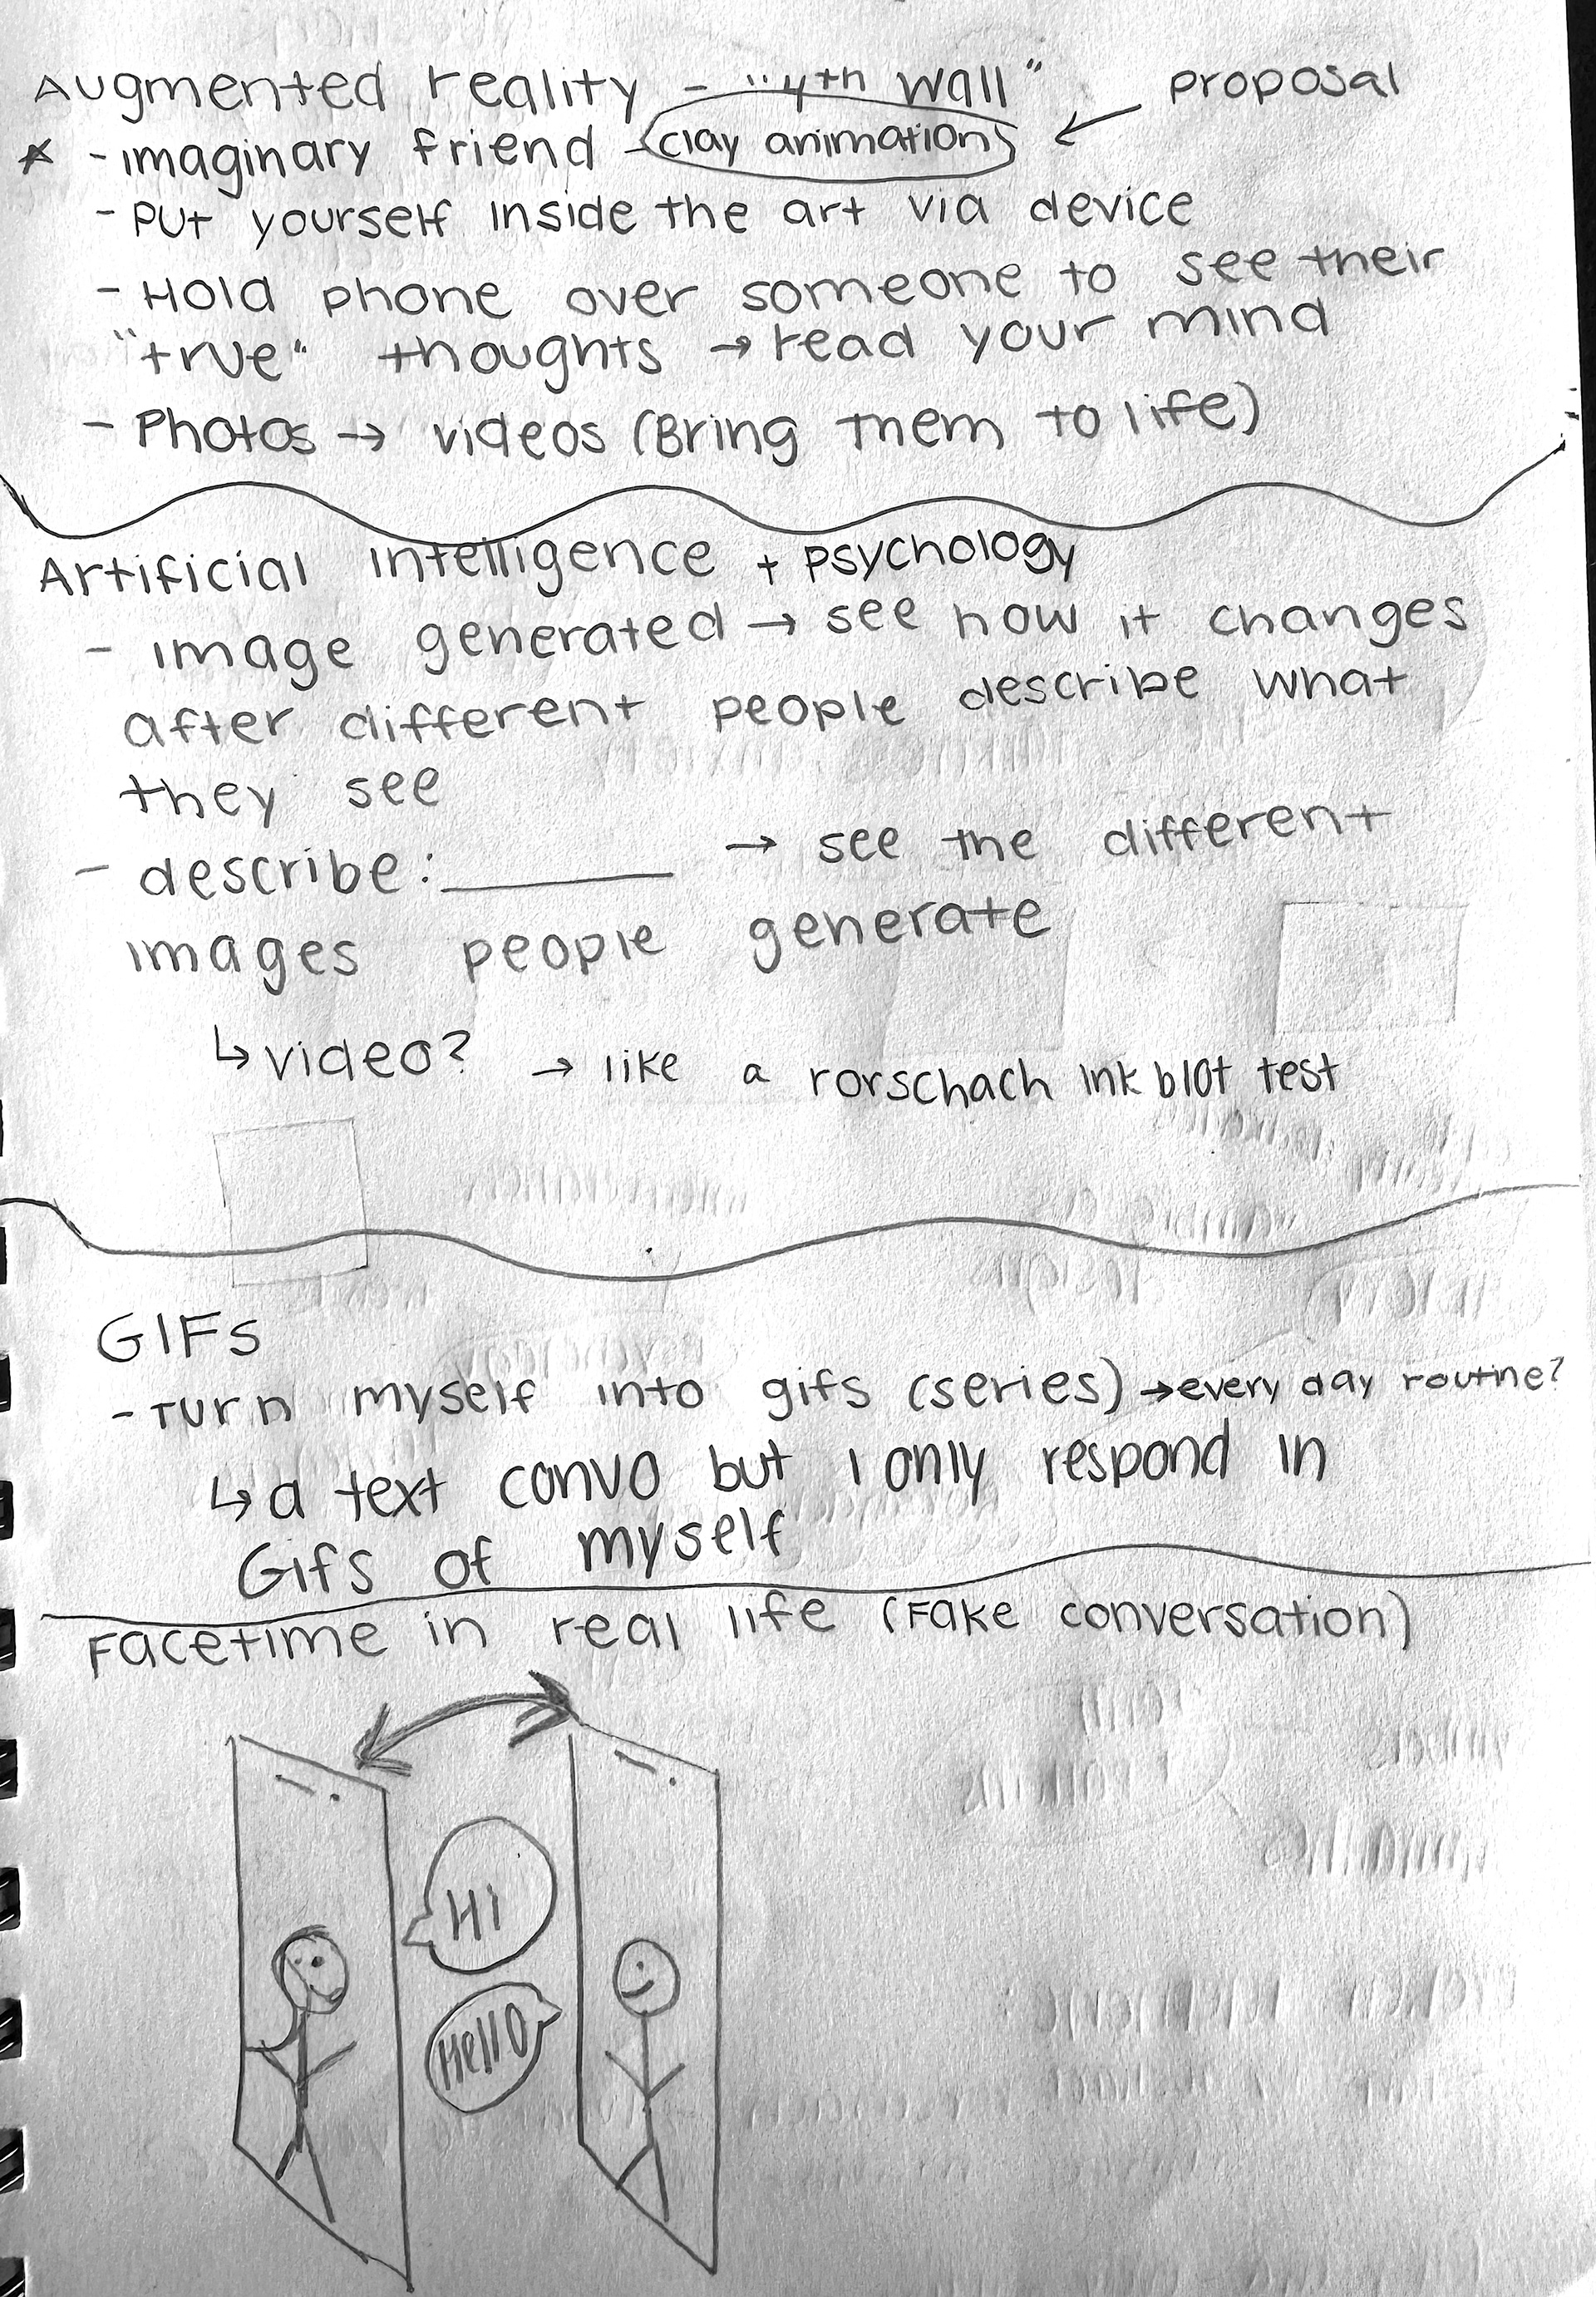 Augmented reality - "4th wall" proposal
- imaginary friend - clay animation
- Put yourself inside the art via device
- Hold phone over someone to see their
"true" thoughts → read your mind
- Photos → videos (Bring them to life)
Artificial intelligence + psychology
- image generated → see how it changes
after different people describe what
they see
- describe: ______ → see the different
images people generate
↳ video? → like a rorschach ink blot test
GIFs
- Turn myself into gifs (series) → every day routine?
↳ a text convo but I only respond in
Gifs of myself
Facetime in real life (Fake conversation)
Hi
Hello